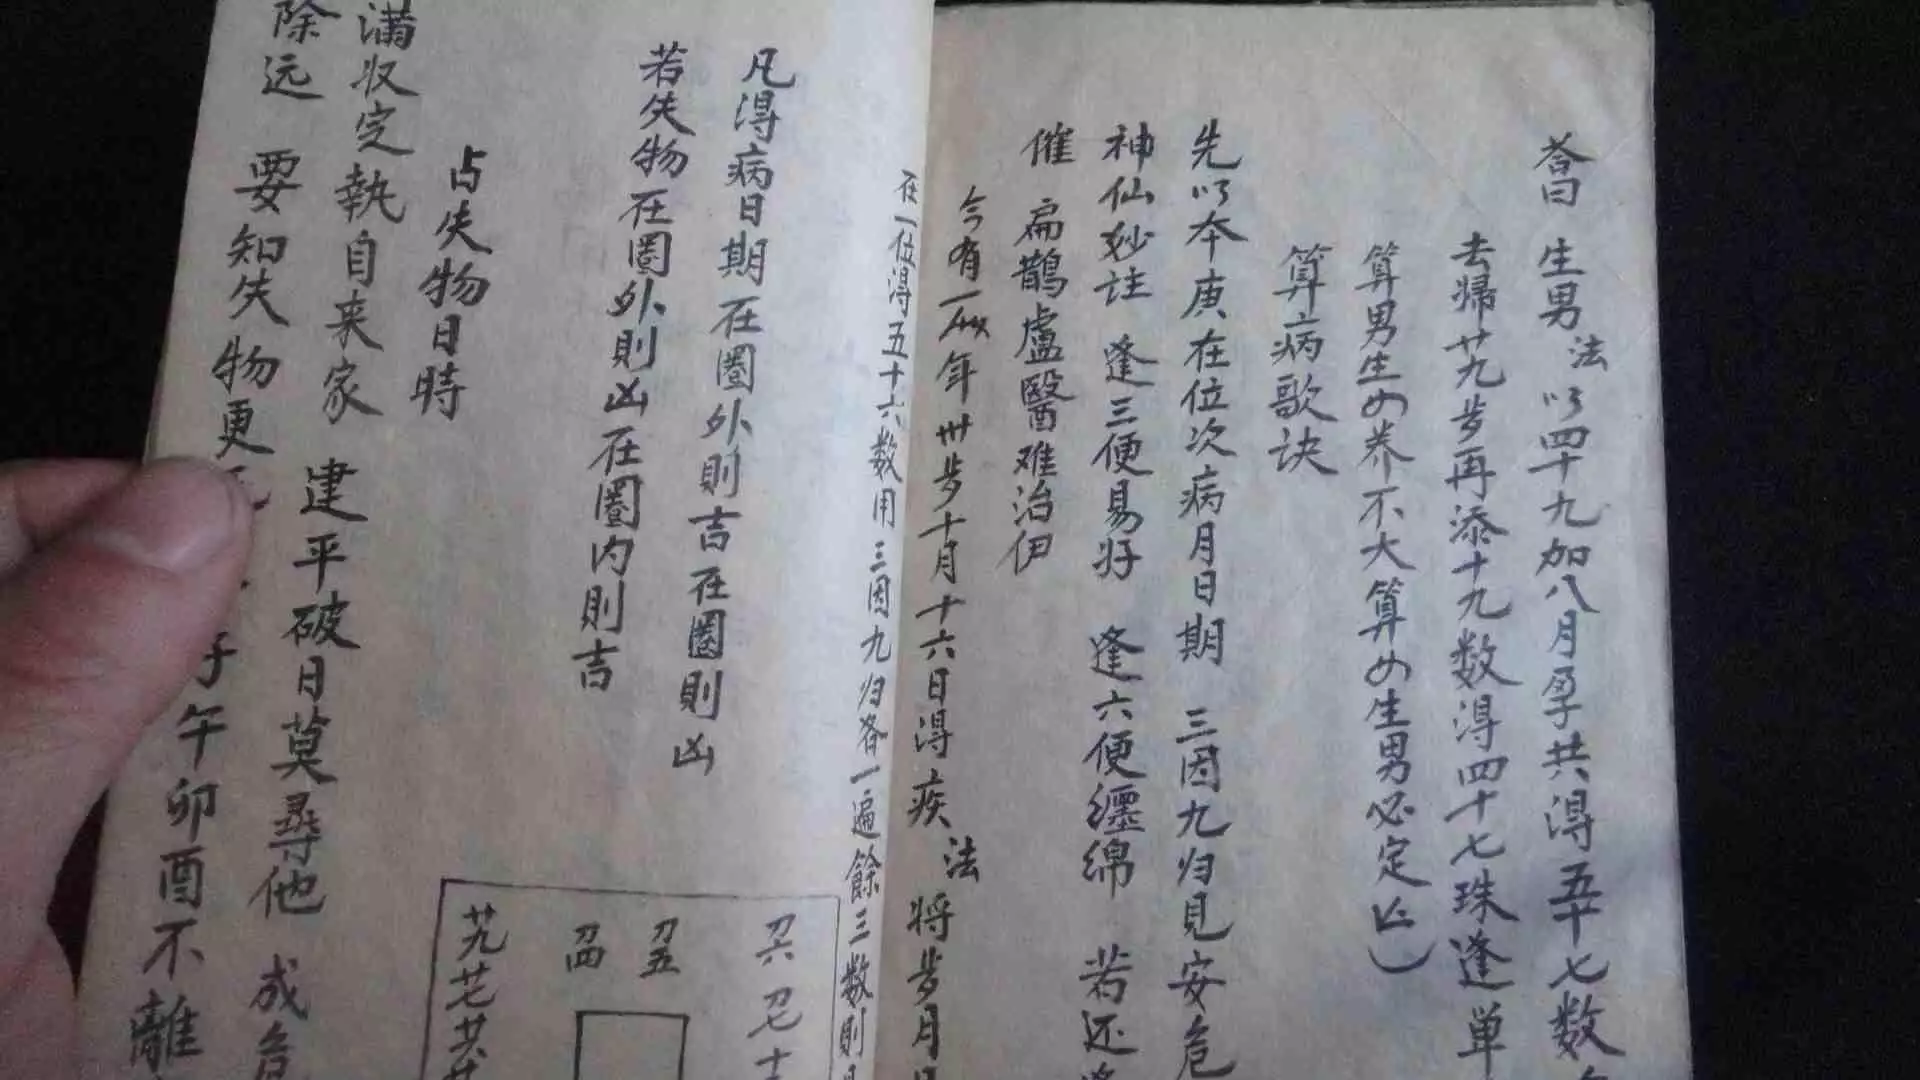 荅曰 生男 法 以四十九加八月孕共得五十七数
去帰廿九步再添十九数得四十七珠逢単
算男生女养不大算女生男必定亡
算病歌诀
先以本庚在位次病月日期 三因九归見安危
神仙妙诠 逢三便易好 逢六便纏綿 若还逢
催 扁鵲盧醫难治伊
今有一 年卅步十月十六日得疾 法 将步月日
在一位得五十六数用三因九归各一遍餘三数則
凡得病日期在圈外則吉在圈則凶
若失物在圈外則凶在圈内則吉
占失物日時
满收定執自来家 建平破日莫尋他 成危
除远 要知失物更 子午卯酉不離
刀六 刀七
刀五
刀四
廿九 廿七